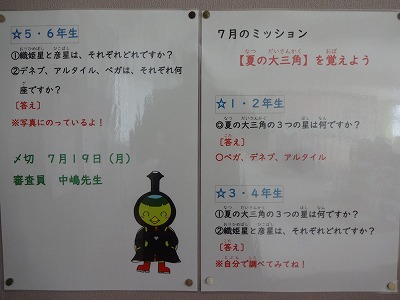 ☆5・6年生
①織姫星と彦星は、それぞれどれですか？
②デネブ、アルタイル、ベガは、それぞれ何
座ですか？
［答え］
※写真にのっているよ！
〆切　7月19日（月）
審査員　中嶋先生
7月のミッション
【夏の大三角】を覚えよう
☆1・2年生
◎夏の大三角の3つの星は何ですか？
［答え］
〇ベガ、デネブ、アルタイル
☆3・4年生
①夏の大三角の3つの星は何ですか？
②織姫星と彦星は、それぞれどれですか？
［答え］
※自分で調べてみてね！